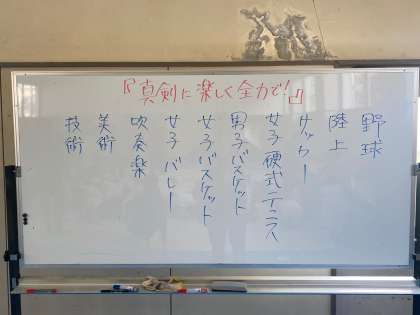 『真剣に楽しく全力で!』
野球
陸上
サッカー
女子硬式テニス
男子バスケット
女子バスケット
女子バレー
吹奏楽
美術
技術